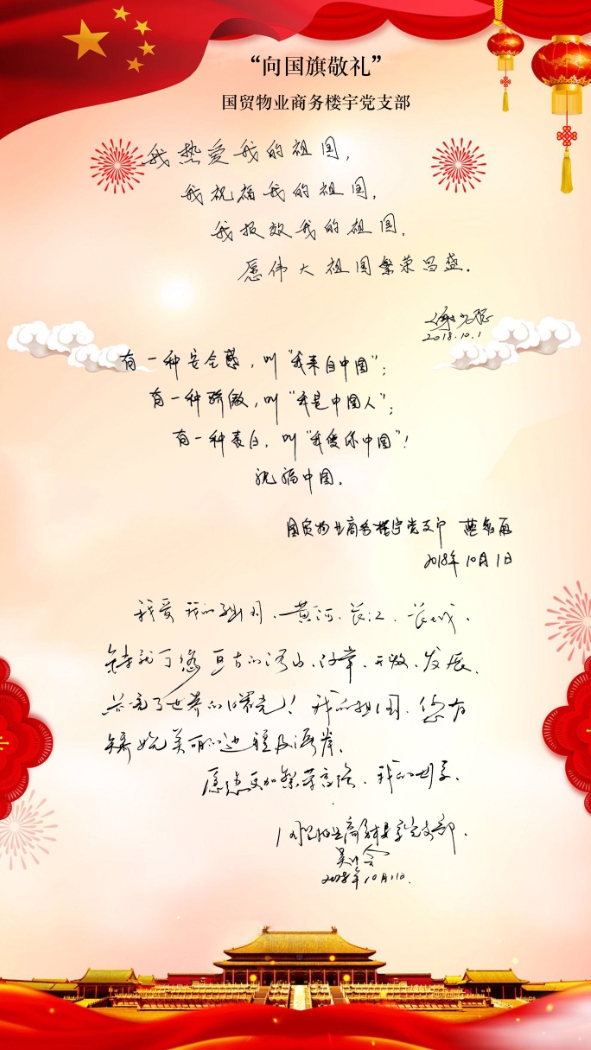 “向国旗敬礼”
国贸物业商务楼宇党支部
我热爱我的祖国,
我祝福我的祖国,
我报效我的祖国,
愿伟大祖国繁荣昌盛.
2018.10.1
有一种安全感,叫“我来自中国”;
有一种骄傲,叫“我是中国人”;
有一种表白,叫“我爱你中国”!
祝福中国.
国贸物业商务楼宇党支部
2018年10月1日
我爱我的祖国、黄河、长江、长城、
铸就了您亘古的
发展、
世界的曙光!我的祖国、您有
美丽的
愿您更加繁荣富强、我的
商务楼宇党支部.
2018年10月1日.